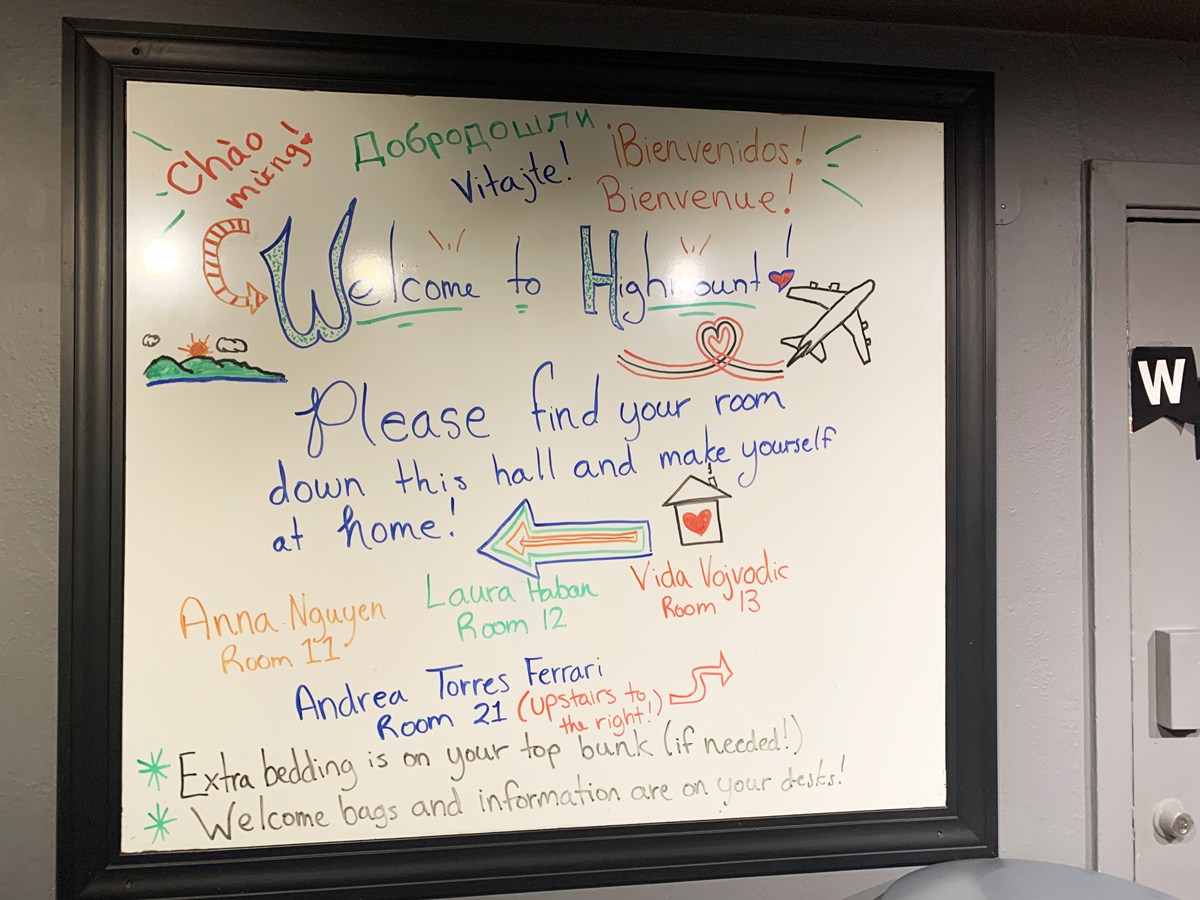 Chào
mừng!
Добродошли
Vitajte!
¡Bienvenidos!
Bienvenue!
Welcome to Highmount!
Please find your room
down this hall and make yourself
at home!
Anna Nguyen
Room 11
Laura Haban
Room 12
Vida Vojvodic
Room 13
Andrea Torres Ferrari
Room 21 (upstairs to
the right!)
* Extra bedding is on your top bunk (if needed!)
* Welcome bags and information are on your desks!
W